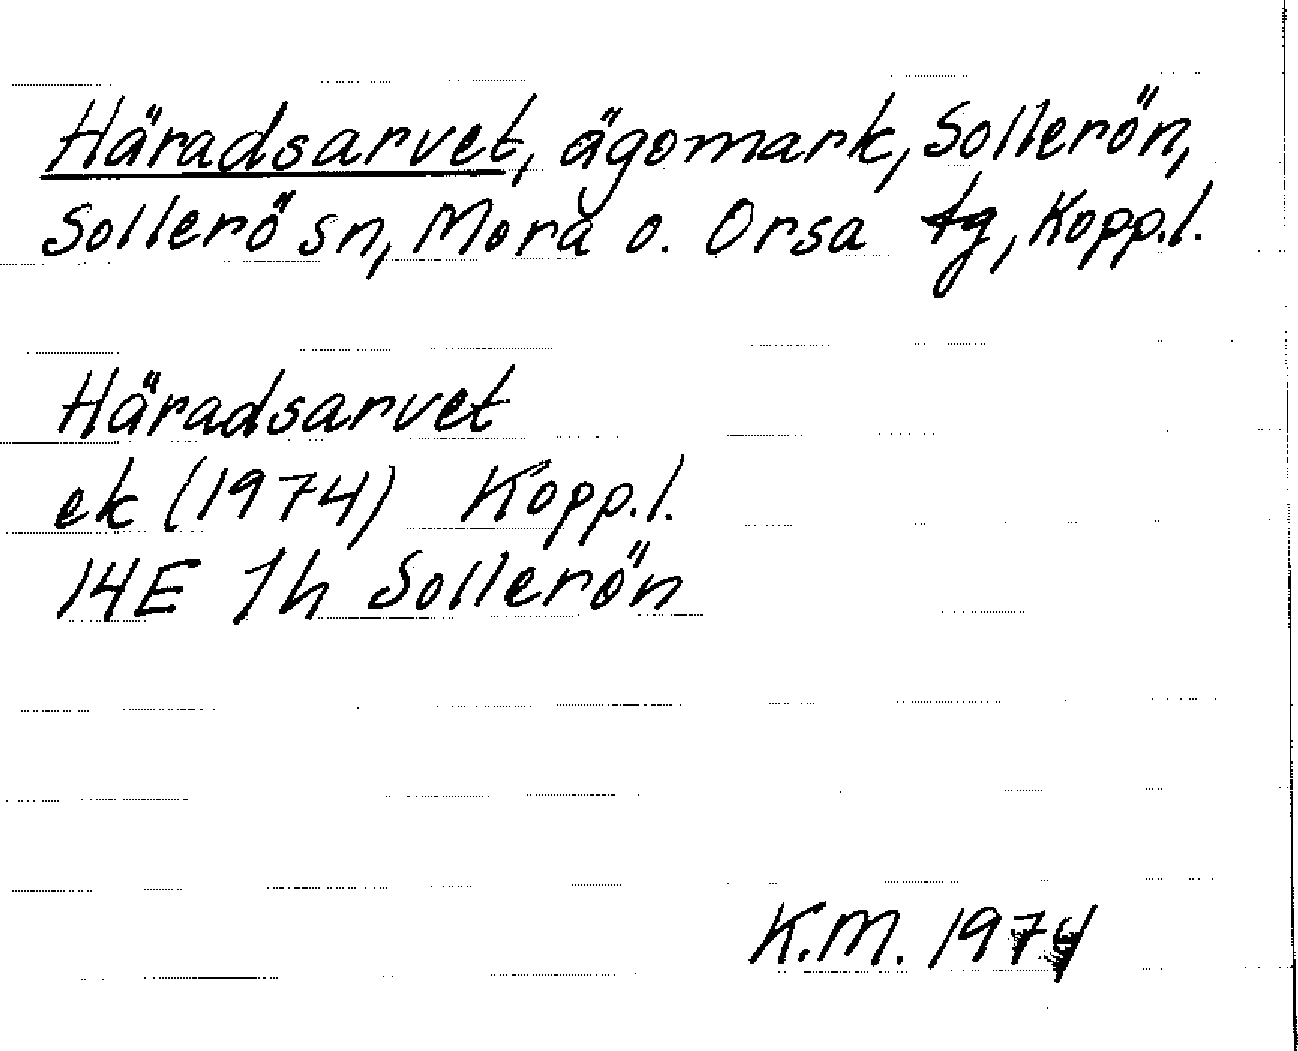 Häradsarvet, ägomark, Sollerön,
Sollerö sn, Mora o. Orsa tg, Kopp.l.
Häradsarvet
ek (1974) Kopp.l.
14E 1h Sollerön
K.M. 1974